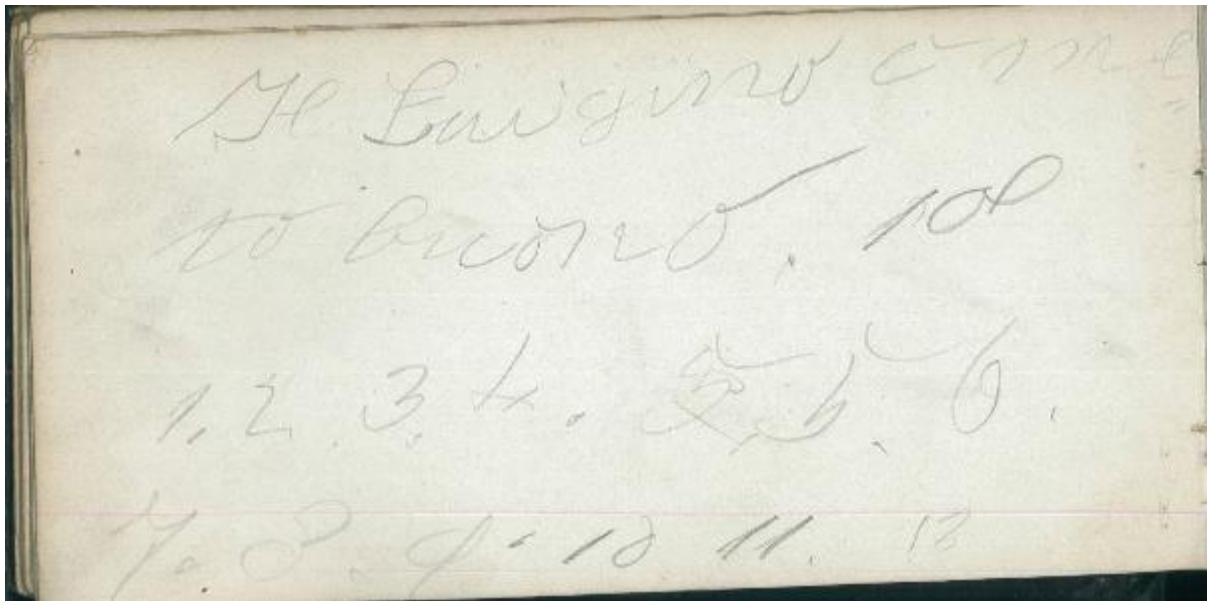 Il Luigino è me
to buono. 10
1. 2. 3. 4. 5. 6.
7. 8. 9. 10 11. 12